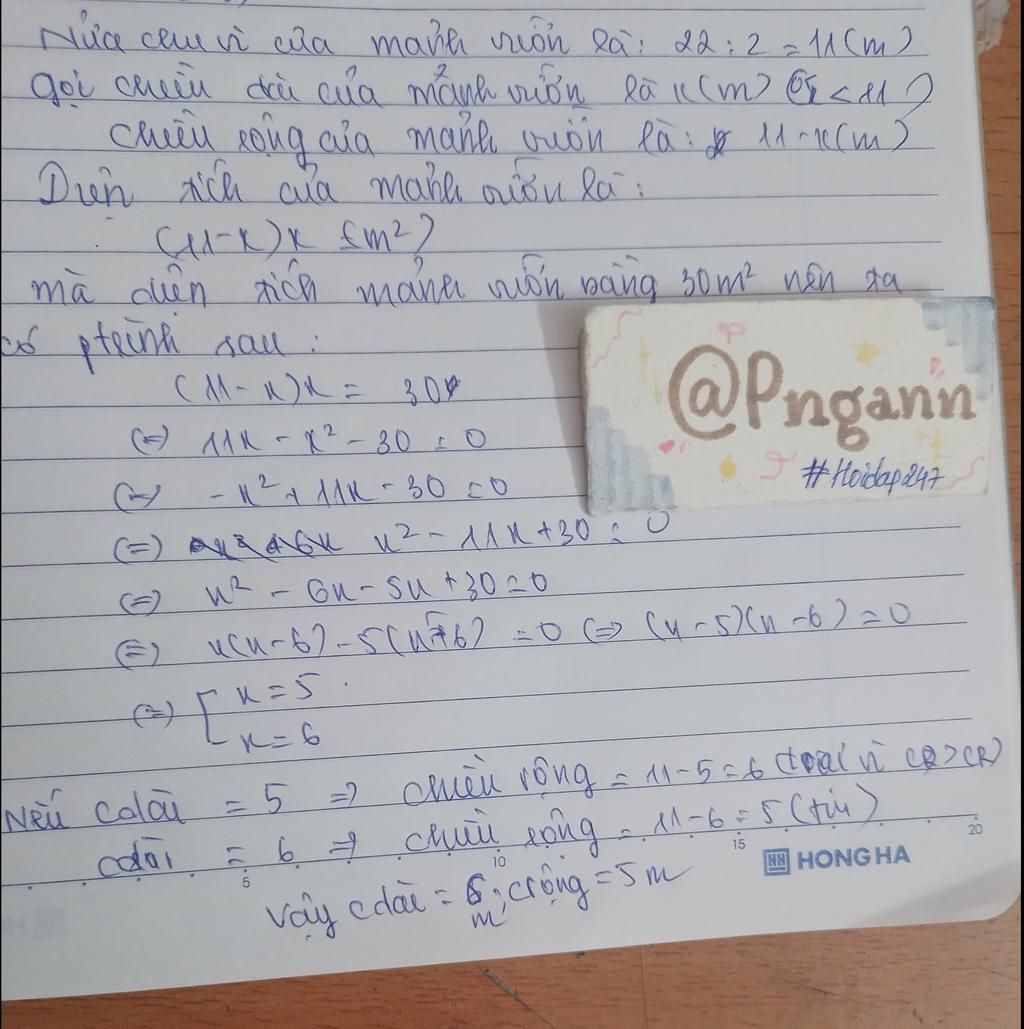 Nửa chu vi của mảnh vườn là: 22 : 2 = 11 (m)
gọi chiều dài của mảnh vườn là x (m) (x < 11)
chiều rộng của mảnh vườn là: 11 - x (m)
Diện tích của mảnh vườn là:
(11-x)x (m²)
mà diện tích mảnh vườn bằng 30m² nên ta
có ptrình sau:
(11 - x)x = 30
(=) 11x - x² - 30 = 0
(=) -x² + 11x - 30 = 0
(=) x² - 11x + 30 = 0
(=) x² - 6x - 5x + 30 = 0
(=) x(x-6) - 5(x-6) = 0 (=) (x-5)(x-6) = 0
(=) [ x = 5
x = 6
Nếu cdài = 5 => chiều rộng = 11-5 = 6 (loại vì CD > CR)
cdài = 6 => chiều rộng = 11-6 = 5 (t/m)
Vậy cdài = 6m; crộng = 5m
@Pngann
#Hoidap247
5 10 15 20
HH HONG HA